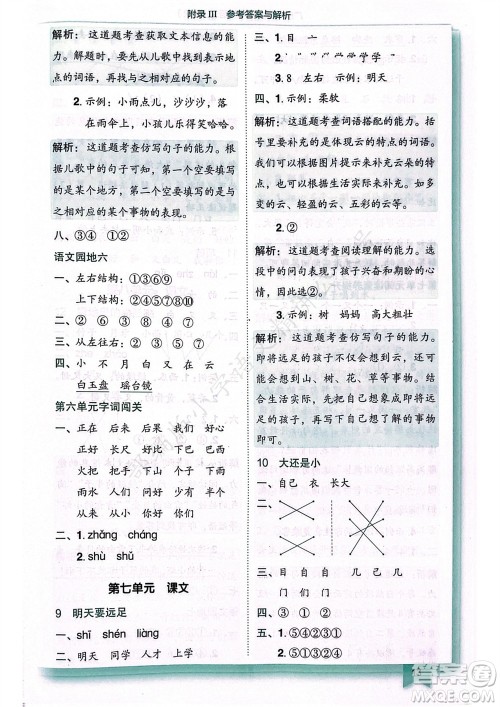 附录 III 参考答案与解析
解析：这道题考查获取文本信息的能
力。解题时，要先从儿歌中找到表示地
点的词语，再找出与之相对应的句子。
2. 示例：小雨点儿，沙沙沙，落
在雨伞上，小孩儿乐得笑哈哈。
解析：这道题考查仿写句子的能力。
根据儿歌中的句子可知，第一个空要
填写某个地方，第二个空要填写某个
人或某个事物的表现。
八、③④ ①②
语文园地六
一、左右结构：①③⑥⑨
上下结构：②④⑤⑦⑧⑩
二、② ④ ① ③
三、③ ② ① ④
四、小 不 月 白 又 在 云
白玉盘 瑶台镜
第六单元字词闯关
一、正在 后来 后果 长了 长江
正好 长尺 好比 下巴 西巴
火把 把手 下山 个子 下子
雨水 人们 问好 少有 半个
从来 你好 才来 明亮
二、1. zhǎng cháng
2. shù shǔ
第七单元 课文
9 明天要远足
一、shī shén liàng
二、明天 同学 人才 上学
三、1. 目 亠 一
2. ③ 3. 8 左右 明天
四、1. 示例：柔软
解析：这道题考查词语搭配的能力。括
号里要补充的是能体现云朵的特点
的词语。可以根据图片提示来补充，也
可以根据生活实际来补充，如“多变
的云、轻盈的云、五彩的云”等。
2. ②
五、1. ②
解析：这道题考查阅读理解的能力。选
段中的问句表现了孩子兴奋和期盼的
心情，因此选②。
2. 示例：树 妈妈 高大粗壮
解析：这道题考查仿写句子的能力。
即将远足的孩子不仅会想到云，还可
能会想到山、树、花、草等事物。可
以联系生活实际，想一想即将去远
足的孩子，还会想了解哪些事物的特
点。写出孩子想了解的事物的特点
即可。
10 大还是小
一、自己 衣 长大
三、目 自 自 几 己 几
门 门 们
四、③ ① ②
五、1. ⑤④③①②
2. ①②③④⑤
答案圈